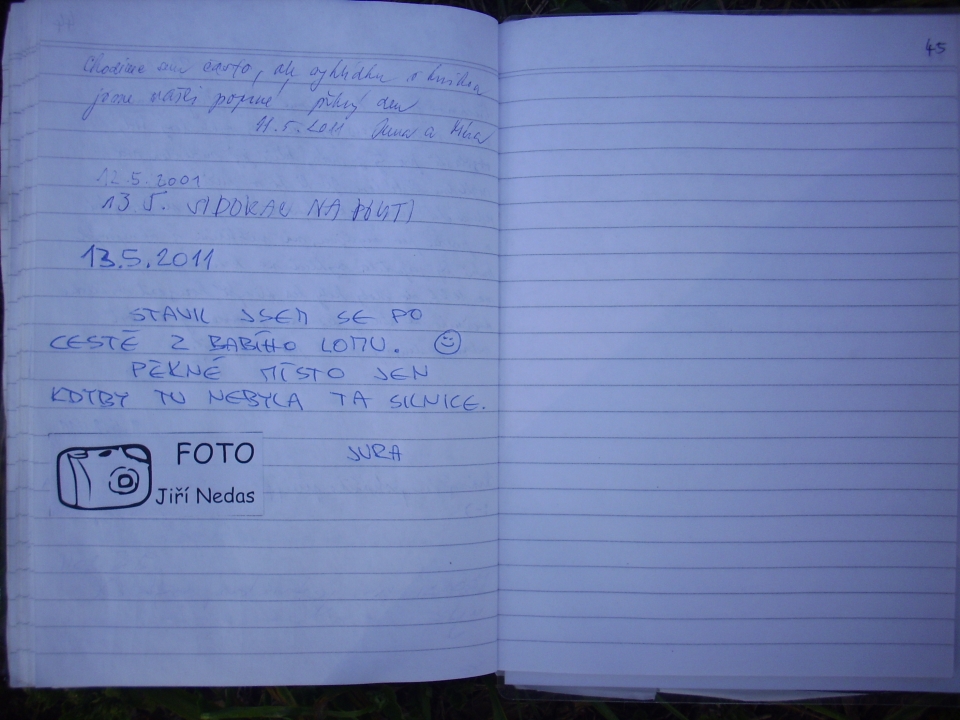 45
Chodíme sem často, ale vyhlídku a knížku
jsme našli poprvé. pěkný den
11.5.2011 a Míra
12.5.2001
13.5. NA POUTI
13.5.2011
STAVIL JSEM SE PO
CESTĚ Z BABÍHO LOMU. ☺
PĚKNÉ MÍSTO JEN
KDYBY TU NEBYLA TA SILNICE.
JURA
FOTO
Jiří Nedas